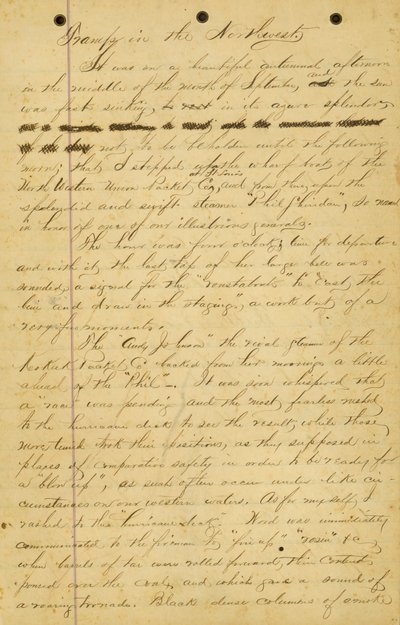 Tramps in the Northwest.
It was on a beautiful autumnal afternoon
in the middle of the month of September, and the sun
was fast sinking to rest in its azure splendor
not to be beholden until the following
morn, that I stepped upon the wharf boat of the
at St Louis
North Western Union Packet Co, and from there upon the
splendid and swift steamer "Phil Sheridan", so named
in honor of one of our illustrious generals.
The hour was four o'clock, time for departure
and with it the last tap of her large bell was
sounded, a signal for the "roustabouts" to "cast the
line and draw in the staging", a work but of a
very few moments.
The "Andy Johnson" the rival steamer of the
Keokuk Packet Co backed from her moorings a little
ahead of the "Phil". It was soon whispered that
a "race" was pending and the most fearless rushed
to the hurricane deck to see the result, while those
more timid took their positions, as they supposed in
places of comparative safety in order to be ready for
a "blow up", as such often occur under like cir
cumstances on our western waters. As for myself I
rushed to the hurricane deck. Word was immediately
communicated to the fireman to "fire up" "rosin" &c
when barrels of tar were rolled forward, their contents
poured over the coal, and which gave a sound of
a roaring tornado. Black dense columns of smoke